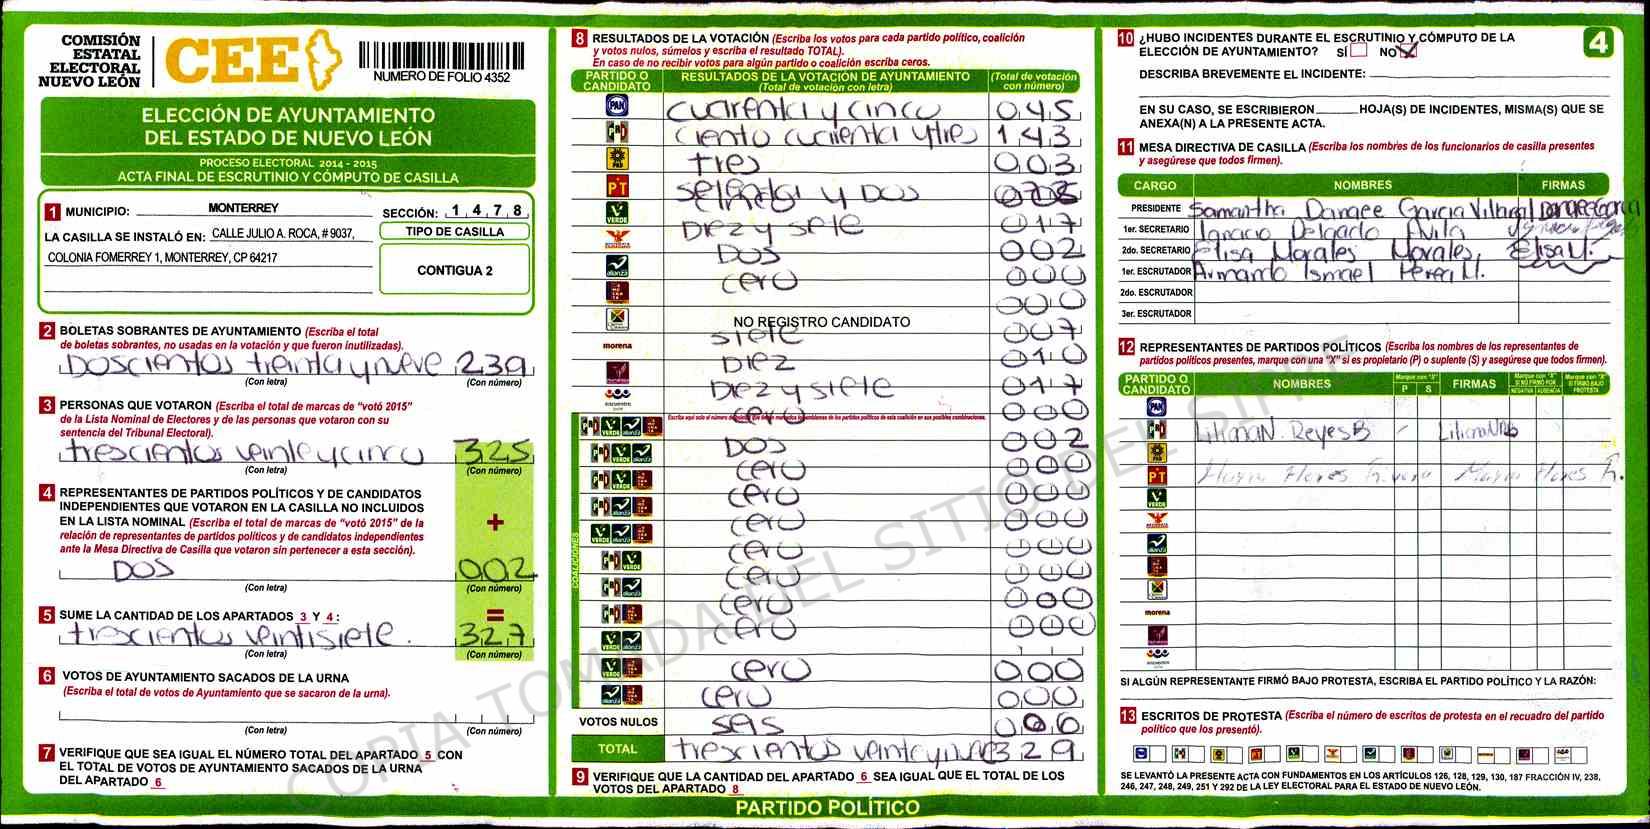 COMISIÓN
ESTATAL
ELECTORAL
NUEVO LEÓN
CEE
NUMERO DE FOLIO 4352
ELECCIÓN DE AYUNTAMIENTO
DEL ESTADO DE NUEVO LEÓN
PROCESO ELECTORAL 2014 - 2015
ACTA FINAL DE ESCRUTINIO Y CÓMPUTO DE CASILLA
1 MUNICIPIO: MONTERREY SECCIÓN: 1 4 7 8
LA CASILLA SE INSTALÓ EN: CALLE JULIO A. ROCA, # 9037,
COLONIA FOMERREY 1, MONTERREY, CP 64217
TIPO DE CASILLA
CONTIGUA 2
2 BOLETAS SOBRANTES DE AYUNTAMIENTO (Escriba el total
de boletas sobrantes, no usadas en la votación y que fueron inutilizadas).
Doscientos treinta y nueve 239
(Con letra) (Con número)
3 PERSONAS QUE VOTARON (Escriba el total de marcas de "votó 2015"
de la Lista Nominal de Electores y de las personas que votaron con su
sentencia del Tribunal Electoral).
trescientos veinte y cinco 325
(Con letra) (Con número)
4 REPRESENTANTES DE PARTIDOS POLÍTICOS Y DE CANDIDATOS
INDEPENDIENTES QUE VOTARON EN LA CASILLA NO INCLUIDOS
EN LA LISTA NOMINAL (Escriba el total de marcas de "votó 2015" de la
relación de representantes de partidos políticos y de candidatos independientes
ante la Mesa Directiva de Casilla que votaron sin pertenecer a esta sección).
+
DOS 002
(Con letra) (Con número)
5 SUME LA CANTIDAD DE LOS APARTADOS 3 Y 4 :
=
trescientos veintisiete. 327
(Con letra) (Con número)
6 VOTOS DE AYUNTAMIENTO SACADOS DE LA URNA
(Escriba el total de votos de Ayuntamiento que se sacaron de la urna).
(Con letra) (Con número)
7 VERIFIQUE QUE SEA IGUAL EL NÚMERO TOTAL DEL APARTADO 5 CON
EL TOTAL DE VOTOS DE AYUNTAMIENTO SACADOS DE LA URNA
DEL APARTADO 6
8 RESULTADOS DE LA VOTACIÓN (Escriba los votos para cada partido político, coalición
y votos nulos, súmelos y escriba el resultado TOTAL).
En caso de no recibir votos para algún partido o coalición escriba ceros.
PARTIDO O
CANDIDATO
RESULTADOS DE LA VOTACIÓN DE AYUNTAMIENTO
(Total de votación con letra)
(Total de votación
con número)
PAN cuarenta y cinco 045
PRD ciento cuarenta y tres 143
tres 003
PT y DOS
VERDE Diez y siete 017
DOS 002
alianza cero 000
000
NO REGISTRO CANDIDATO
siete 007
morena
Diez 010
Diez y siete 017
cero 000
DOS 002
cero 000
cero 000
cero 000
cero 000
cero 000
cero 000
cero 000
COALICIONES
cero 000
cero 000
VOTOS NULOS seis 006
TOTAL trescientos veinte y nueve 329
9 VERIFIQUE QUE LA CANTIDAD DEL APARTADO 6 SEA IGUAL QUE EL TOTAL DE LOS
VOTOS DEL APARTADO 8
PARTIDO POLÍTICO
4
10 ¿HUBO INCIDENTES DURANTE EL ESCRUTINIO Y CÓMPUTO DE LA
ELECCIÓN DE AYUNTAMIENTO? SÍ NO X
DESCRIBA BREVEMENTE EL INCIDENTE:
EN SU CASO, SE ESCRIBIERON HOJA(S) DE INCIDENTES, MISMA(S) QUE SE
ANEXA(N) A LA PRESENTE ACTA.
11 MESA DIRECTIVA DE CASILLA (Escriba los nombres de los funcionarios de casilla presentes
y asegúrese que todos firmen).
CARGO NOMBRES FIRMAS
PRESIDENTE Samantha Danaee Garcia Villareal
1er. SECRETARIO Ignacio Delgado Avila
2do. SECRETARIO Elisa Morales Morales Elisa M.
1er. ESCRUTADOR Armando Ismael Perea M.
2do. ESCRUTADOR
3er. ESCRUTADOR
12 REPRESENTANTES DE PARTIDOS POLÍTICOS (Escriba los nombres de los representantes de
partidos políticos presentes, marque con una "X" si es propietario (P) o suplente (S) y asegúrese que todos firmen).
PARTIDO O
CANDIDATO
NOMBRES
Marque con "X"
P S
FIRMAS
Marque con "X"
SI NO FIRMÓ POR
NEGATIVA AUSENCIA
Marque con "X"
SI FIRMÓ BAJO
PROTESTA
PAN
Liliana N. Reyes B
PT Flores Flores R.
VERDE
alianza
morena
SI ALGÚN REPRESENTANTE FIRMÓ BAJO PROTESTA, ESCRIBA EL PARTIDO POLÍTICO Y LA RAZÓN:
13 ESCRITOS DE PROTESTA (Escriba el número de escritos de protesta en el recuadro del partido
político que los presentó).
SE LEVANTÓ LA PRESENTE ACTA CON FUNDAMENTOS EN LOS ARTÍCULOS 126, 128, 129, 130, 187 FRACCIÓN IV, 238,
246, 247, 248, 249, 251 Y 292 DE LA LEY ELECTORAL PARA EL ESTADO DE NUEVO LEÓN.
COPIA TOMADA DEL SITIO DEL SIPRE